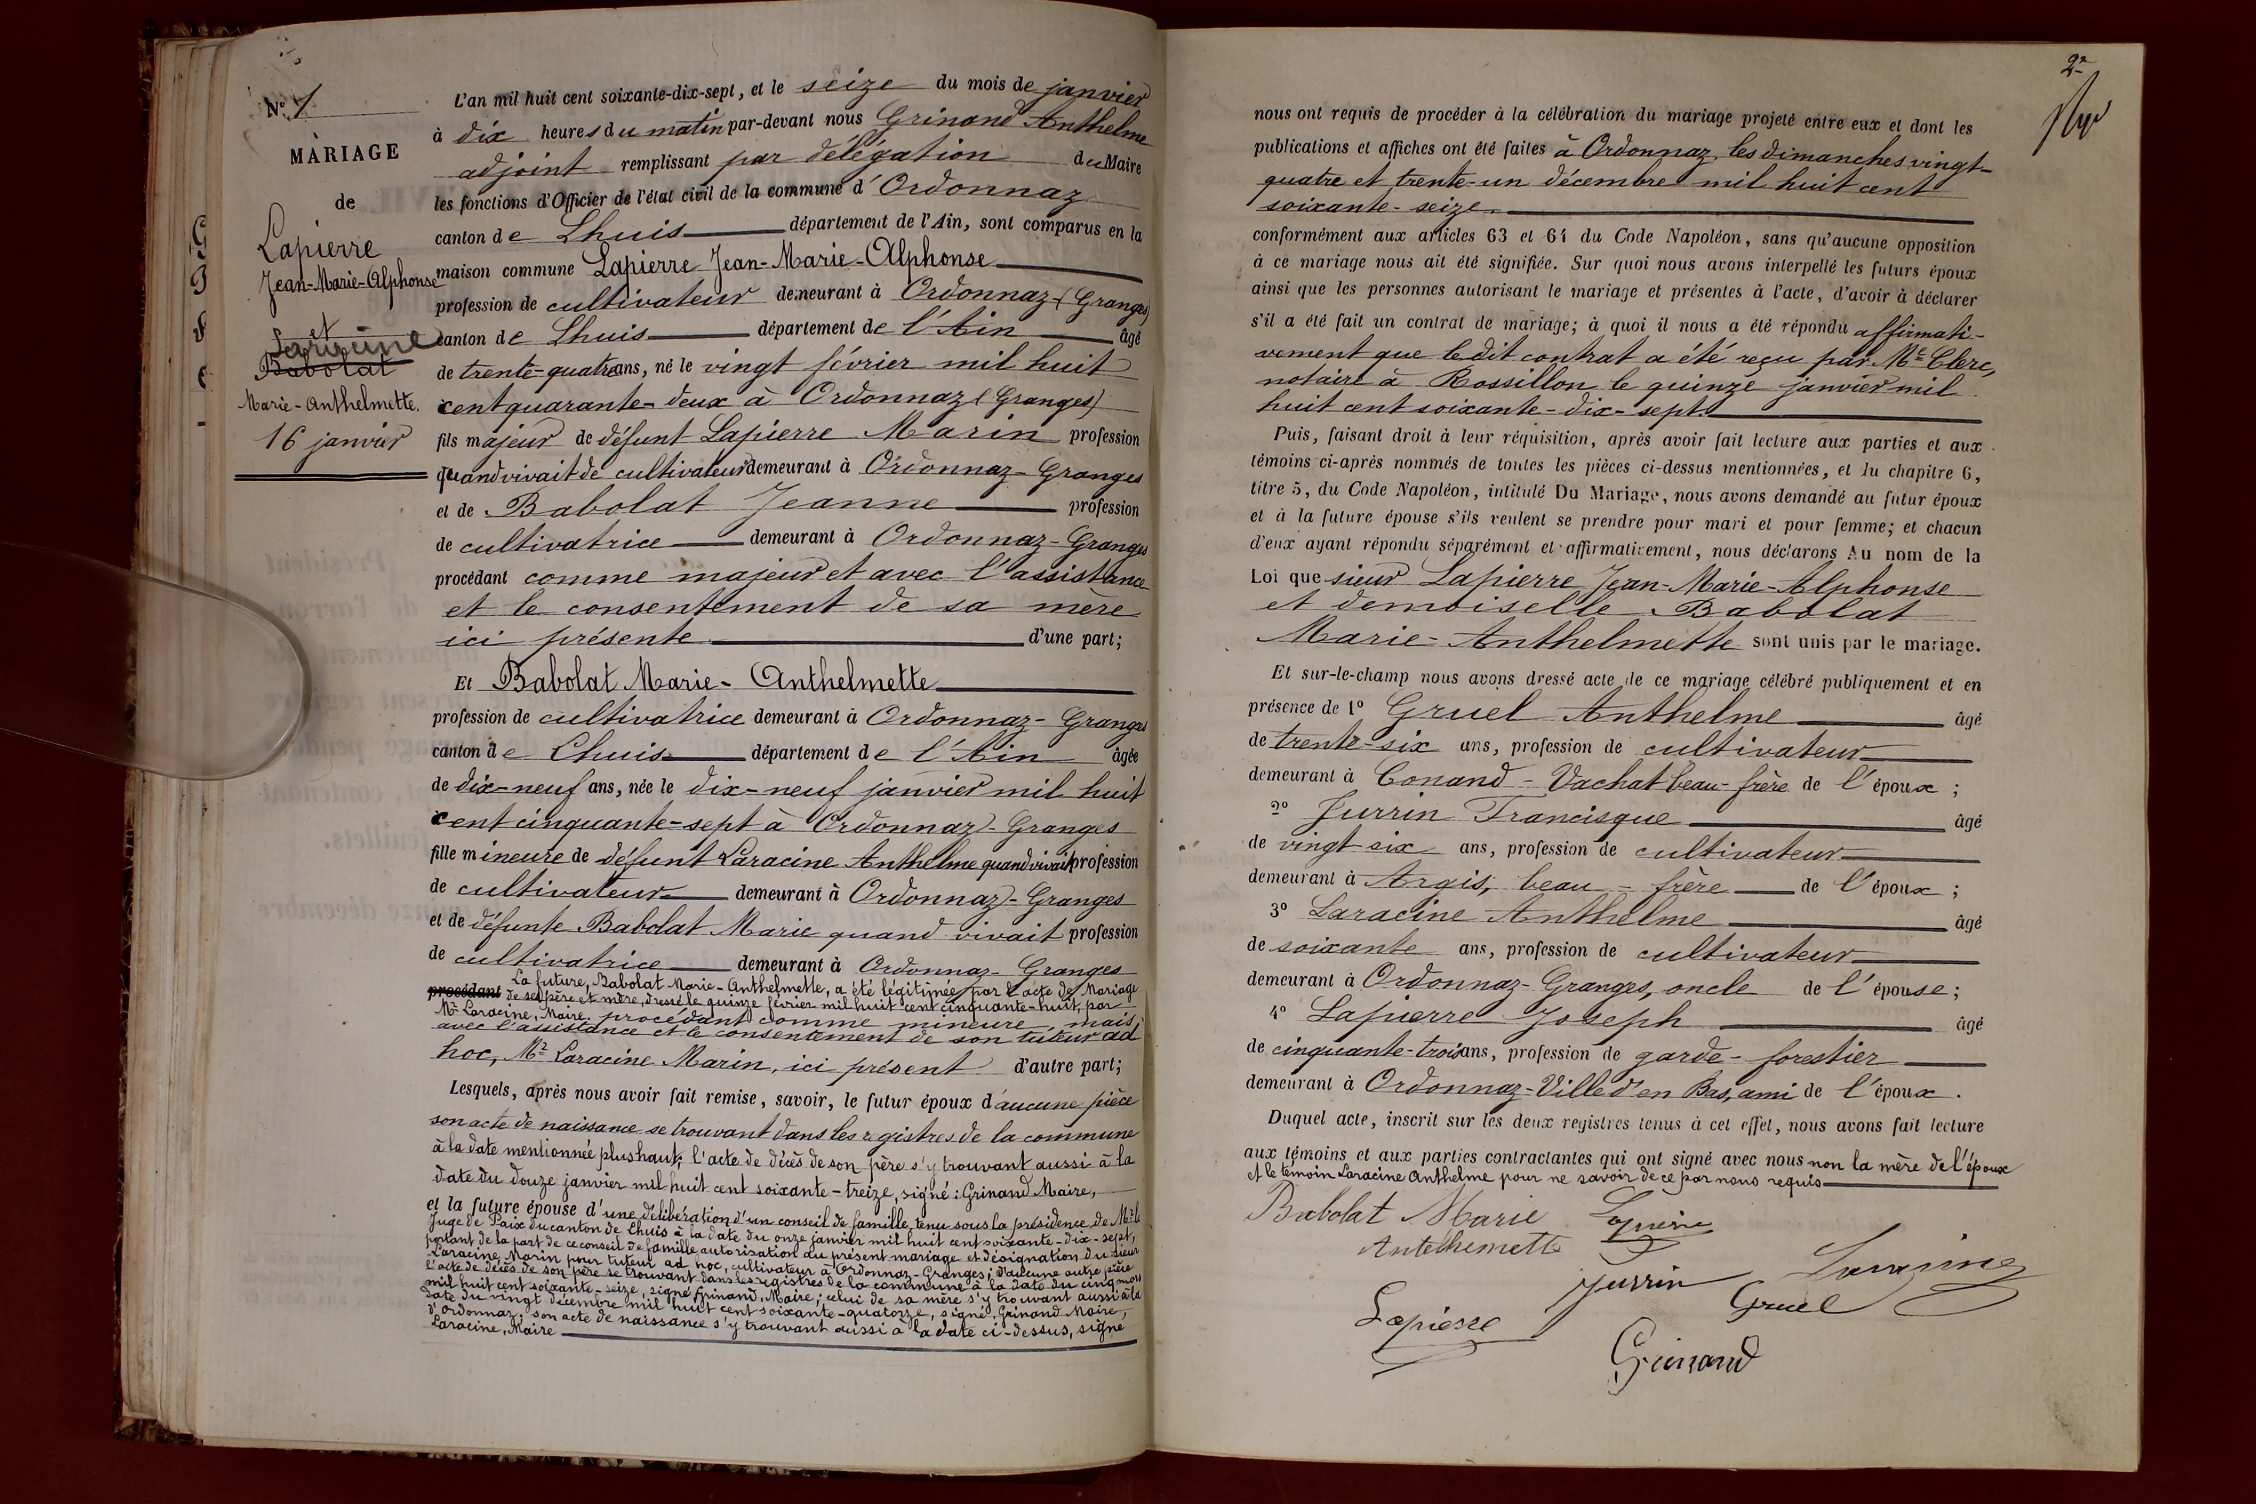 N.º 1
MARIAGE
de
Lapierre
Jean-Marie-Alphonse
et
Laracine
Babolat
Marie-Anthelmette.
16 janvier
L'an mil huit cent soixante-dix-sept, et le seize du mois de janvier
à dix heures du matin par-devant nous Grinand Anthelme
adjoint remplissant par délégation du Maire
les fonctions d'Officier de l'état civil de la commune d'Ordonnaz
canton de Lhuis département de l'Ain, sont comparus en la
maison commune Lapierre Jean-Marie-Alphonse
profession de cultivateur demeurant à Ordonnaz (Granges)
canton de Lhuis département de l'Ain âgé
de trente-quatre ans, né le vingt février mil huit
cent quarante-deux à Ordonnaz (Granges)
fils majeur de défunt Lapierre Marin profession
quand vivait de cultivateur demeurant à Ordonnaz-Granges
et de Babolat Jeanne profession
de cultivatrice demeurant à Ordonnaz-Granges
procédant comme majeur et avec l'assistance
et le consentement de sa mère
ici présente d'une part;
Et Babolat Marie-Anthelmette
profession de cultivatrice demeurant à Ordonnaz-Granges
canton de Lhuis département de l'Ain âgée
de dix-neuf ans, née le dix-neuf janvier mil huit
cent cinquante-sept à Ordonnaz-Granges
fille mineure de défunt Laracine Anthelme quand vivait profession
de cultivateur demeurant à Ordonnaz-Granges
et de défunte Babolat Marie quand vivait profession
de cultivatrice demeurant à Ordonnaz-Granges
La future, Babolat Marie-Anthelmette, a été légitimée par l'acte de Mariage
procédant de ses père et mère, dressé le quinze février mil huit cent cinquante-huit, par
Mr Laracine, Maire. procédant comme mineure, mais
avec l'assistance et le consentement de son tuteur ad
hoc, Mr Laracine Marin, ici présent d'autre part;
Lesquels, après nous avoir fait remise, savoir, le futur époux d'aucune pièce
son acte de naissance se trouvant dans les registres de la commune
à la date mentionnée plus haut; l'acte de décès de son père s'y trouvant aussi à la
date du douze janvier mil huit cent soixante-treize, signé: Grinand Maire,
et la future épouse d'une délibération d'un conseil de famille, tenu sous la présidence de Mr le
Juge de Paix du canton de Lhuis à la date du onze janvier mil huit cent soixante-dix-sept,
portant de la part de ce conseil de famille autorisation au présent mariage et désignation du sieur
Laracine Marin pour tuteur ad hoc, cultivateur à Ordonnaz-Granges; d'aucune autre pièce
l'acte de décès de son père se trouvant dans les registres de la commune à la date du cinq mars
mil huit cent soixante-seize, signé Grinand, Maire; celui de sa mère s'y trouvant aussi à la
date du vingt décembre mil huit cent soixante-quatorze, signé, Grinand Maire,
d'Ordonnaz, son acte de naissance s'y trouvant aussi à la date ci-dessus, signé
Laracine, Maire
2e
nous ont requis de procéder à la célébration du mariage projeté entre eux et dont les
publications et affiches ont été faites à Ordonnaz, les dimanches vingt-
quatre et trente-un décembre mil huit cent
soixante-seize.
conformément aux articles 63 et 64 du Code Napoléon, sans qu'aucune opposition
à ce mariage nous ait été signifiée. Sur quoi nous avons interpellé les futurs époux
ainsi que les personnes autorisant le mariage et présentes à l'acte, d'avoir à déclarer
s'il a été fait un contrat de mariage; à quoi il nous a été répondu affirmati-
vement que le dit contrat a été reçu par Me Clerc,
notaire à Rossillon le quinze janvier mil
huit cent soixante-dix-sept.
Puis, faisant droit à leur réquisition, après avoir fait lecture aux parties et aux
témoins ci-après nommés de toutes les pièces ci-dessus mentionnées, et du chapitre 6,
titre 5, du Code Napoléon, intitulé Du Mariage, nous avons demandé au futur époux
et à la future épouse s'ils veulent se prendre pour mari et pour femme; et chacun
d'eux ayant répondu séparément et affirmativement, nous déclarons Au nom de la
Loi que sieur Lapierre Jean-Marie-Alphonse
et demoiselle Babolat
Marie-Anthelmette sont unis par le mariage.
Et sur-le-champ nous avons dressé acte de ce mariage célébré publiquement et en
présence de 1º Gruel Anthelme âgé
de trente-six ans, profession de cultivateur
demeurant à Conand-Vachat beau-frère de l'époux;
2º Jurrin Francisque âgé
de vingt-six ans, profession de cultivateur
demeurant à Argis, beau-frère de l'époux;
3º Laracine Anthelme âgé
de soixante ans, profession de cultivateur
demeurant à Ordonnaz-Granges, oncle de l'épouse;
4º Lapierre Joseph âgé
de cinquante-trois ans, profession de garde-forestier
demeurant à Ordonnaz-Ville d'en Bas, ami de l'époux.
Duquel acte, inscrit sur les deux registres tenus à cet effet, nous avons fait lecture
aux témoins et aux parties contractantes qui ont signé avec nous non la mère de l'époux
et le témoin Laracine Anthelme pour ne savoir de ce par nous requis
Babolat Marie Lapierre
Antelhemette
Jurrin Laracine
Lapierre Gruel
Grinand